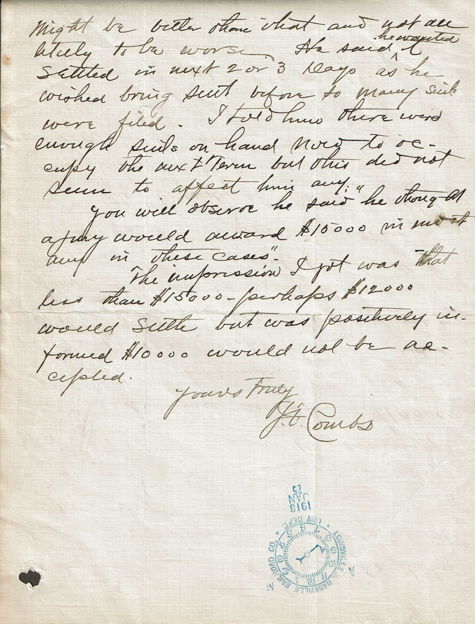 might be better than that and not all
likely to be worse. He said he wanted
settled in next 2 or 3 days as he
wished bring suit before so many suits
were filed. I told him there were
enough suits on hand now to oc-
cupy the next term but this did not
seem to affect him any.
You will observe he said "he thought
a jury would award $15000 in most
any in these cases".
The impression I got was that
less than $15000 - perhaps $12000
would settle but was positively in-
formed $10000 would not be ac-
cepted.
Yours Truly
J. C. Combs
LOUISVILLE & NASHVILLE RAILROAD CO.
LAW DEPT.
JAN 25
1918